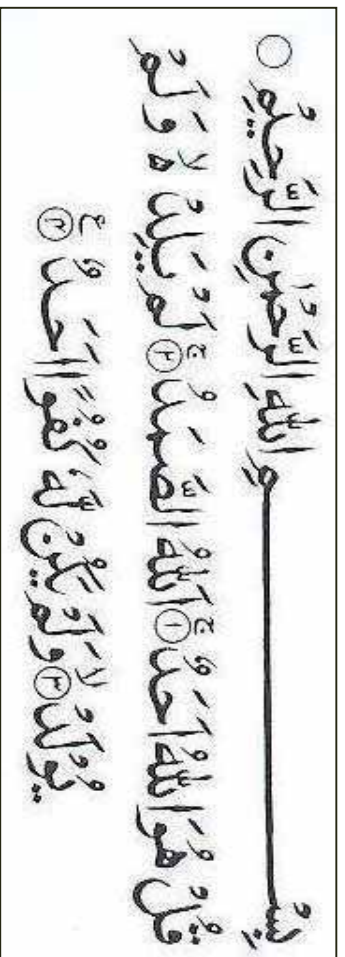 بِسْمِ اللهِ الرَّحْمٰنِ الرَّحِيْمِ ○
قُلْ هُوَ اللهُ اَحَدٌ ۚ ① اَللهُ الصَّمَدُ ۚ ② لَمْ يَلِدْ ۙ ه وَلَمْ
يُوْلَدْ ۙ ③ وَلَمْ يَكُنْ لَّهٗ كُفُوًا اَحَدٌ ع ④